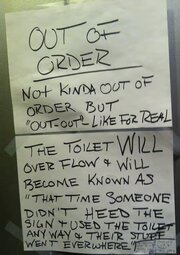 OUT OF
ORDER
NOT KINDA OUT OF
ORDER BUT
"OUT-OUT" LIKE FOR REAL
THE TOILET WILL
OVER FLOW & WILL
BECOME KNOWN AS
"THAT TIME SOMEONE
DIDN'T HEED THE
SIGN & USED THE TOILET
ANY WAY & THEIR STUFF
WENT EVERYWHERE"